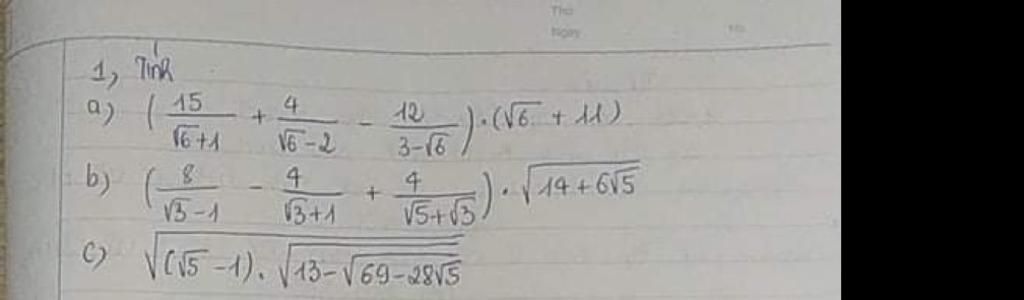 Thứ
Ngày No.
1, Tính
a) (15/(√6+1) + 4/(√6-2) - 12/(3-√6)) · (√6 + 11)
b) (8/(√3-1) - 4/(√3+1) + 4/(√5+√3)) · √(14+6√5)
c) √((√5-1) · √(13-√(69-28√5)))